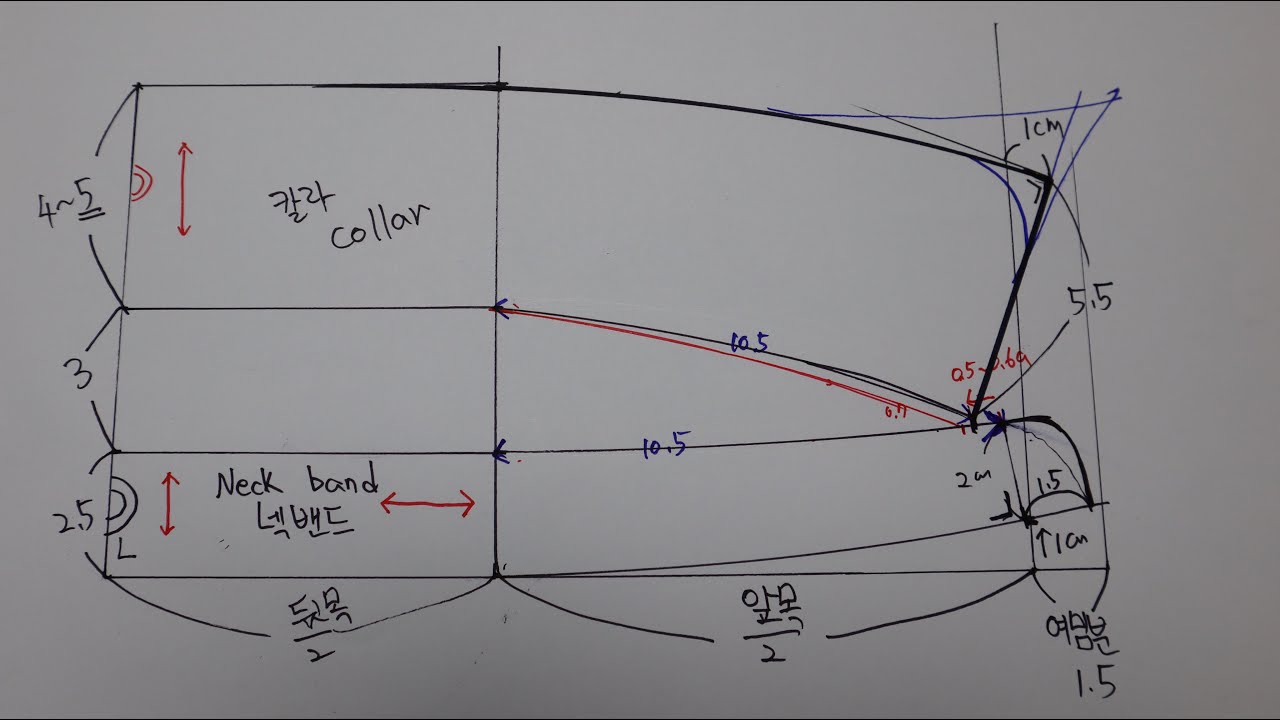 1cm
4~5
칼라
collar
5.5
10.5
3
0.7
10.5
2cm
1.5
Neck band
넥밴드
2.5
L
↑1cm
뒷목
2
앞목
2
여밈분
1.5